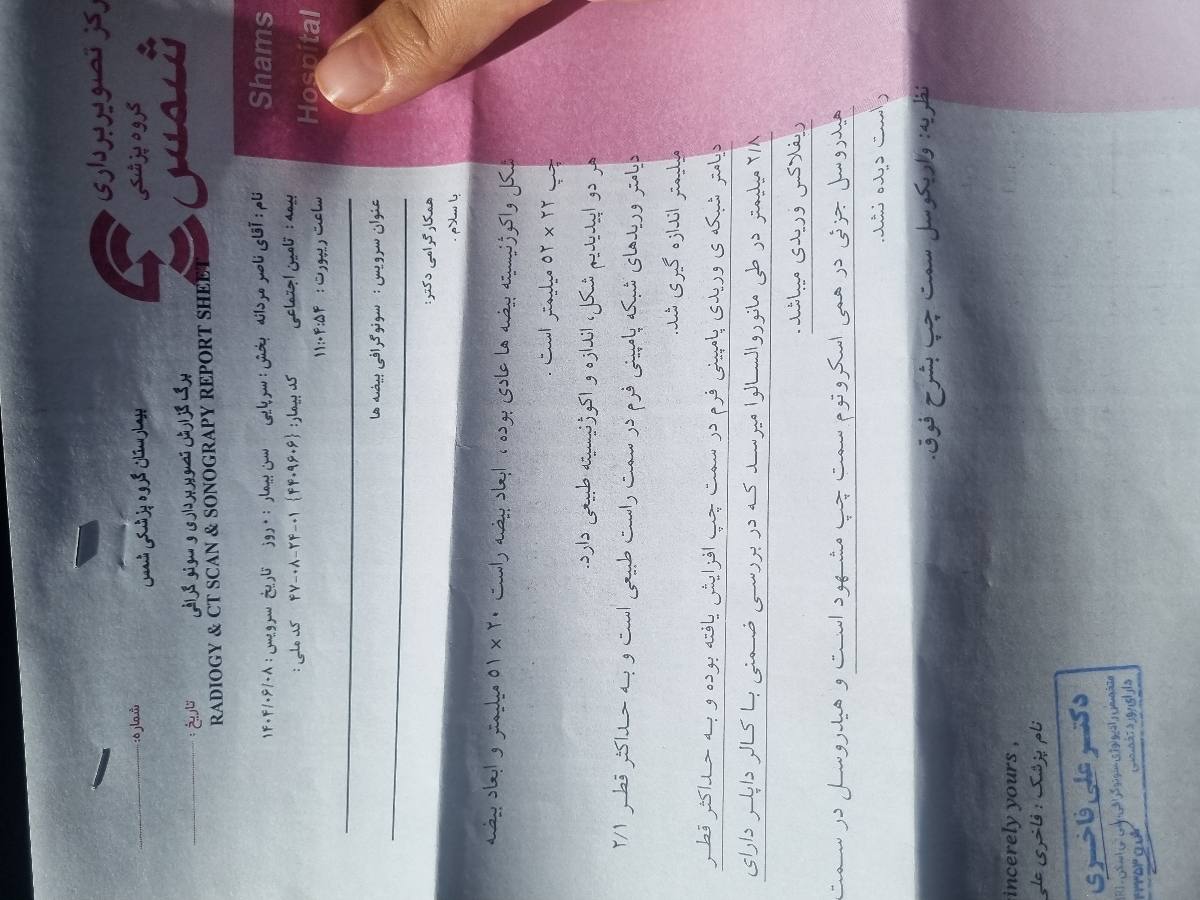 مرکز تصویربرداری
گروه پزشکی
شمس
Shams
Hospital
بیمارستان گروه پزشکی شمس
برگ گزارش تصویربرداری و سونوگرافی
RADIOGY & CT SCAN & SONOGRAPY REPORT SHEET
شماره:
تاریخ :
نام: آقای ناصر مردانه بخش : سرپایی سن بیمار : ۰ روز تاریخ سرویس : ۱۴۰۴/۰۶/۰۸
بیمه : تامین اجتماعی کد بیمار: {۴۴۰۹۶۰۶} ۴۷-۰۸-۲۴-۰۱ کد ملی :
ساعت ریپورت : ۱۱:۰۴:۵۴
عنوان سرویس : سونوگرافی بیضه ها
همکار گرامی دکتر:
با سلام .
شکل واکوژنیسیته بیضه ها عادی بوده ، ابعاد بیضه راست ۲۰ × ۵۱ میلیمتر و ابعاد بیضه
چپ ۲۲ × ۵۲ میلیمتر است .
هر دو اپیدیدیم شکل، اندازه و اکوژنیسیته طبیعی دارد.
دیامتر وریدهای شبکه پامپینی فرم در سمت راست طبیعی است و به حداکثر قطر ۲/۱
میلیمتر اندازه گیری شد.
دیامتر شبکه ی وریدی پامپینی فرم در سمت چپ افزایش یافته بوده و به حداکثر قطر
۲/۸ میلیمتر در طی مانوروالسالوا میرسد که در بررسی ضمنی با کالر داپلر دارای
ریفلاکس وریدی میباشد.
هیدروسل جزئی در همی اسکروتوم سمت چپ مشهود است و هیدروسل در سمت
راست دیده نشد.
نظریه: واریکوسل سمت چپ بشرح فوق.
incerely yours ,
نام پزشک : فاخری علی
دکتر علی فاخری
متخصص رادیولوژی سونوگرافی
دارای بورد تخصصی